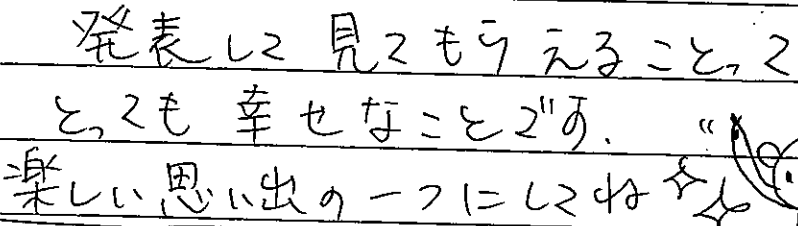 発表して見てもらうえることって
とっても幸せなことです.
楽しい思い出の一つにしてね